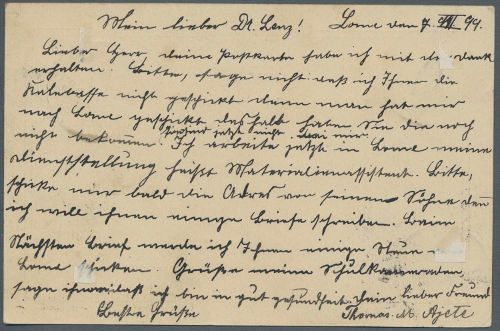 Mein lieber Dr. Lenz! Lome den 7. VII 94.
Lieber Herr, deine Postkarte habe ich mit dank
erhalten. Bitte, sage nicht daß ich Ihnen die
nicht geschickt denn man hat mir
nach Lome geschickt deshalb haben Sie die noch
jetzt nicht bei mir.
nicht bekommen. Ich arbeite jetzt in Lome meine
Dienststellung heißt Materialienassistent. Bitte,
schike mir bald die Adres von seinem Sohne den
ich will ihnen einige Briefe schreiben. Beim
Nächsten Brief werde ich Ihnen einige
schiken. Grüße meinen Schulkameraden
sage ihnen daß ich bin in gut gesundheit. Dein lieber Freund
Beste Grüße Thomas M. Ajete